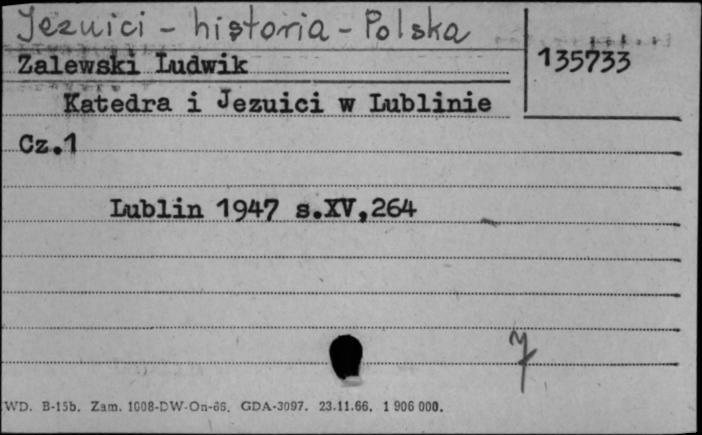 Jezuici - historia - Polska
135733
Zalewski Ludwik
Katedra i Jezuici w Lublinie
Cz.1
Lublin 1947 s.XV,264
WD. B-15b. Zam. 1008-DW-On-66. GDA-3097. 23.11.66. 1 906 000.